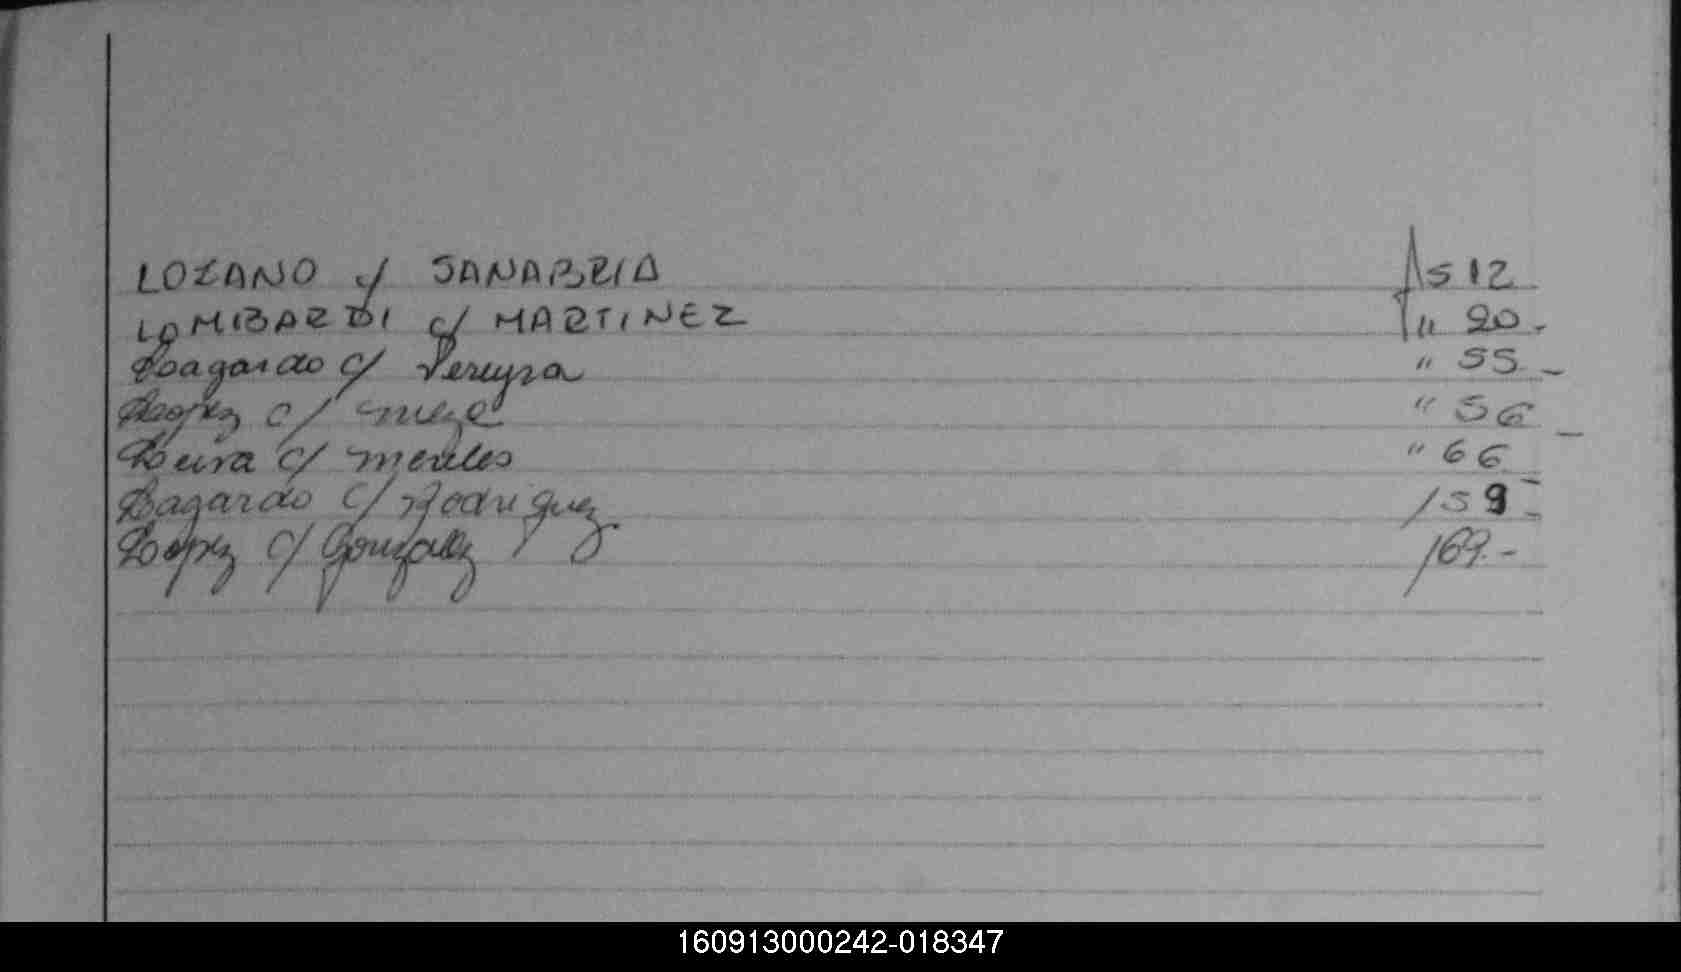 LOZANO c/ SANABRIA fs 12
LOMBARDI c/ MARTINEZ " 20.
Lagardo c/ Pereyra " 55_
Lopez c/ Meza " 56_
Leiva c/ Mereles " 66_
Lagardo c/ Rodriguez 159_
Lopez c/ Gonzalez 169.-
160913000242-018347